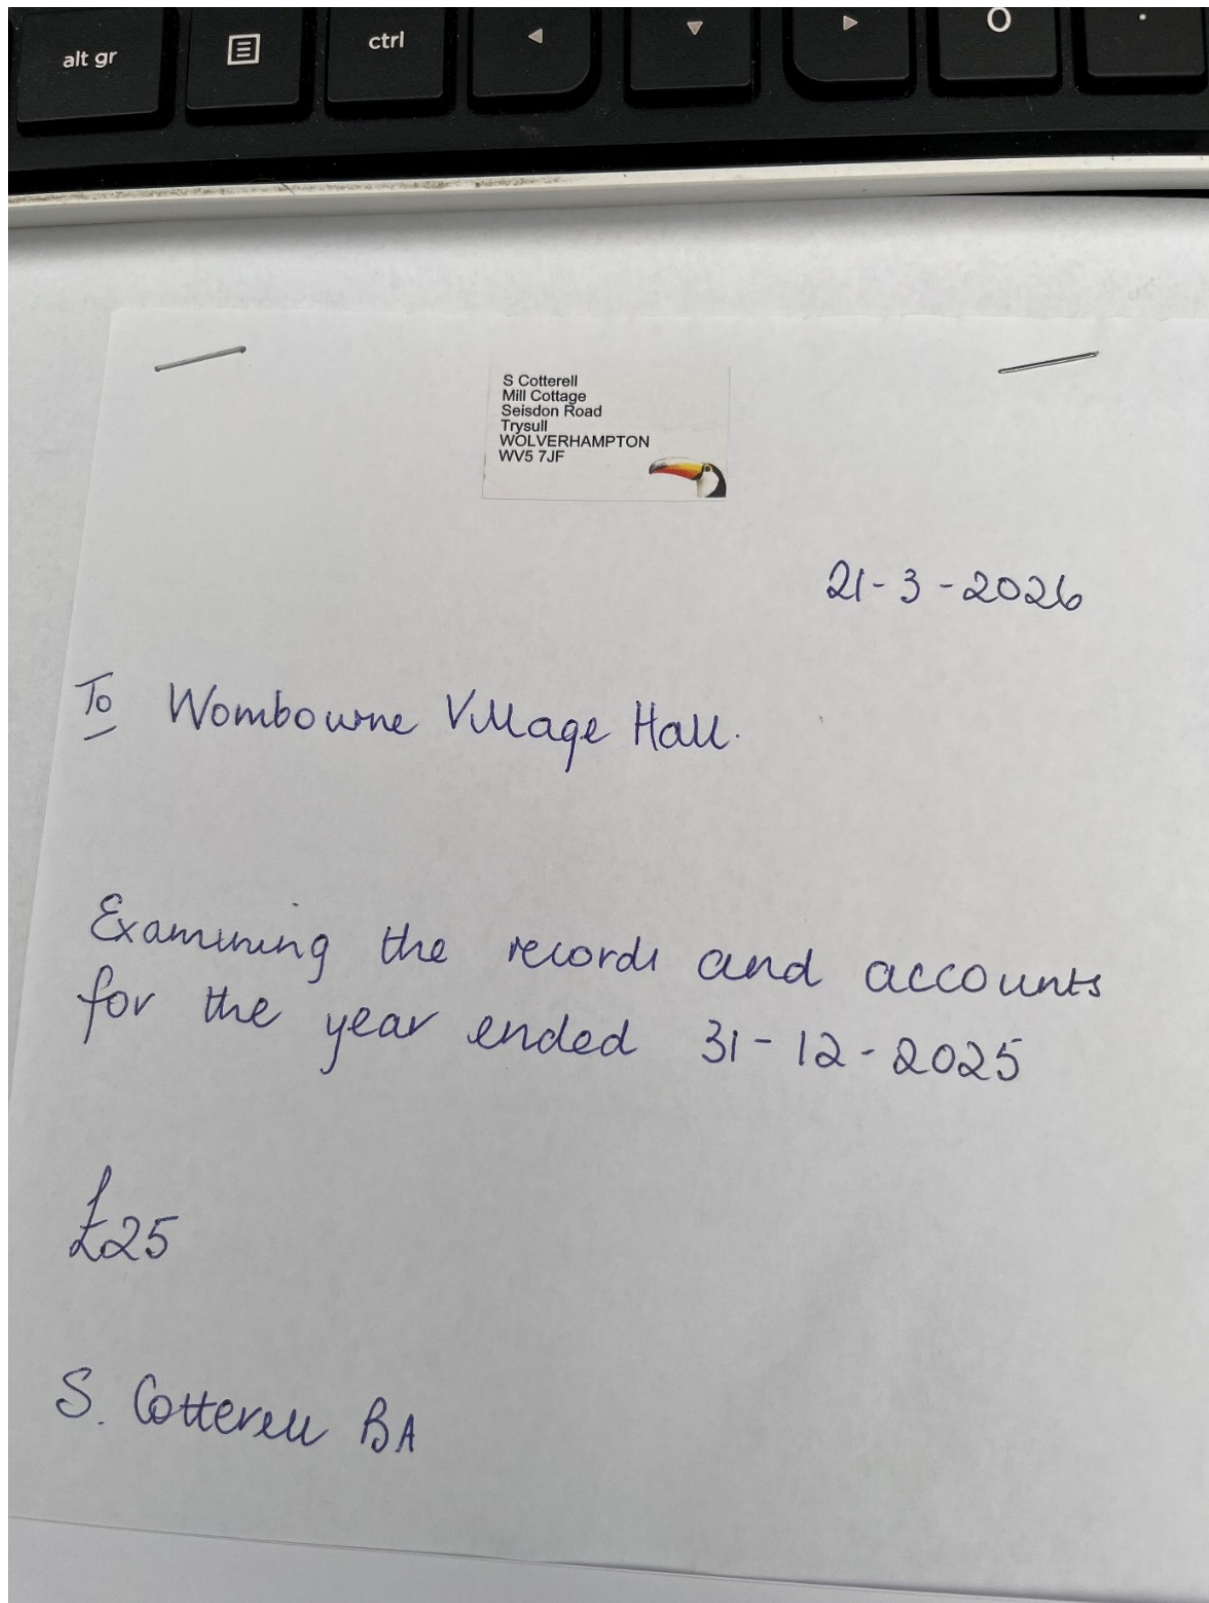 alt gr
ctrl
O
.
S Cotterell
Mill Cottage
Seisdon Road
Trysull
WOLVERHAMPTON
WV5 7JF
21-3-2026
To Wombourne Village Hall.
Examining the records and accounts
for the year ended 31-12-2025
£25
S. Cotterell BA